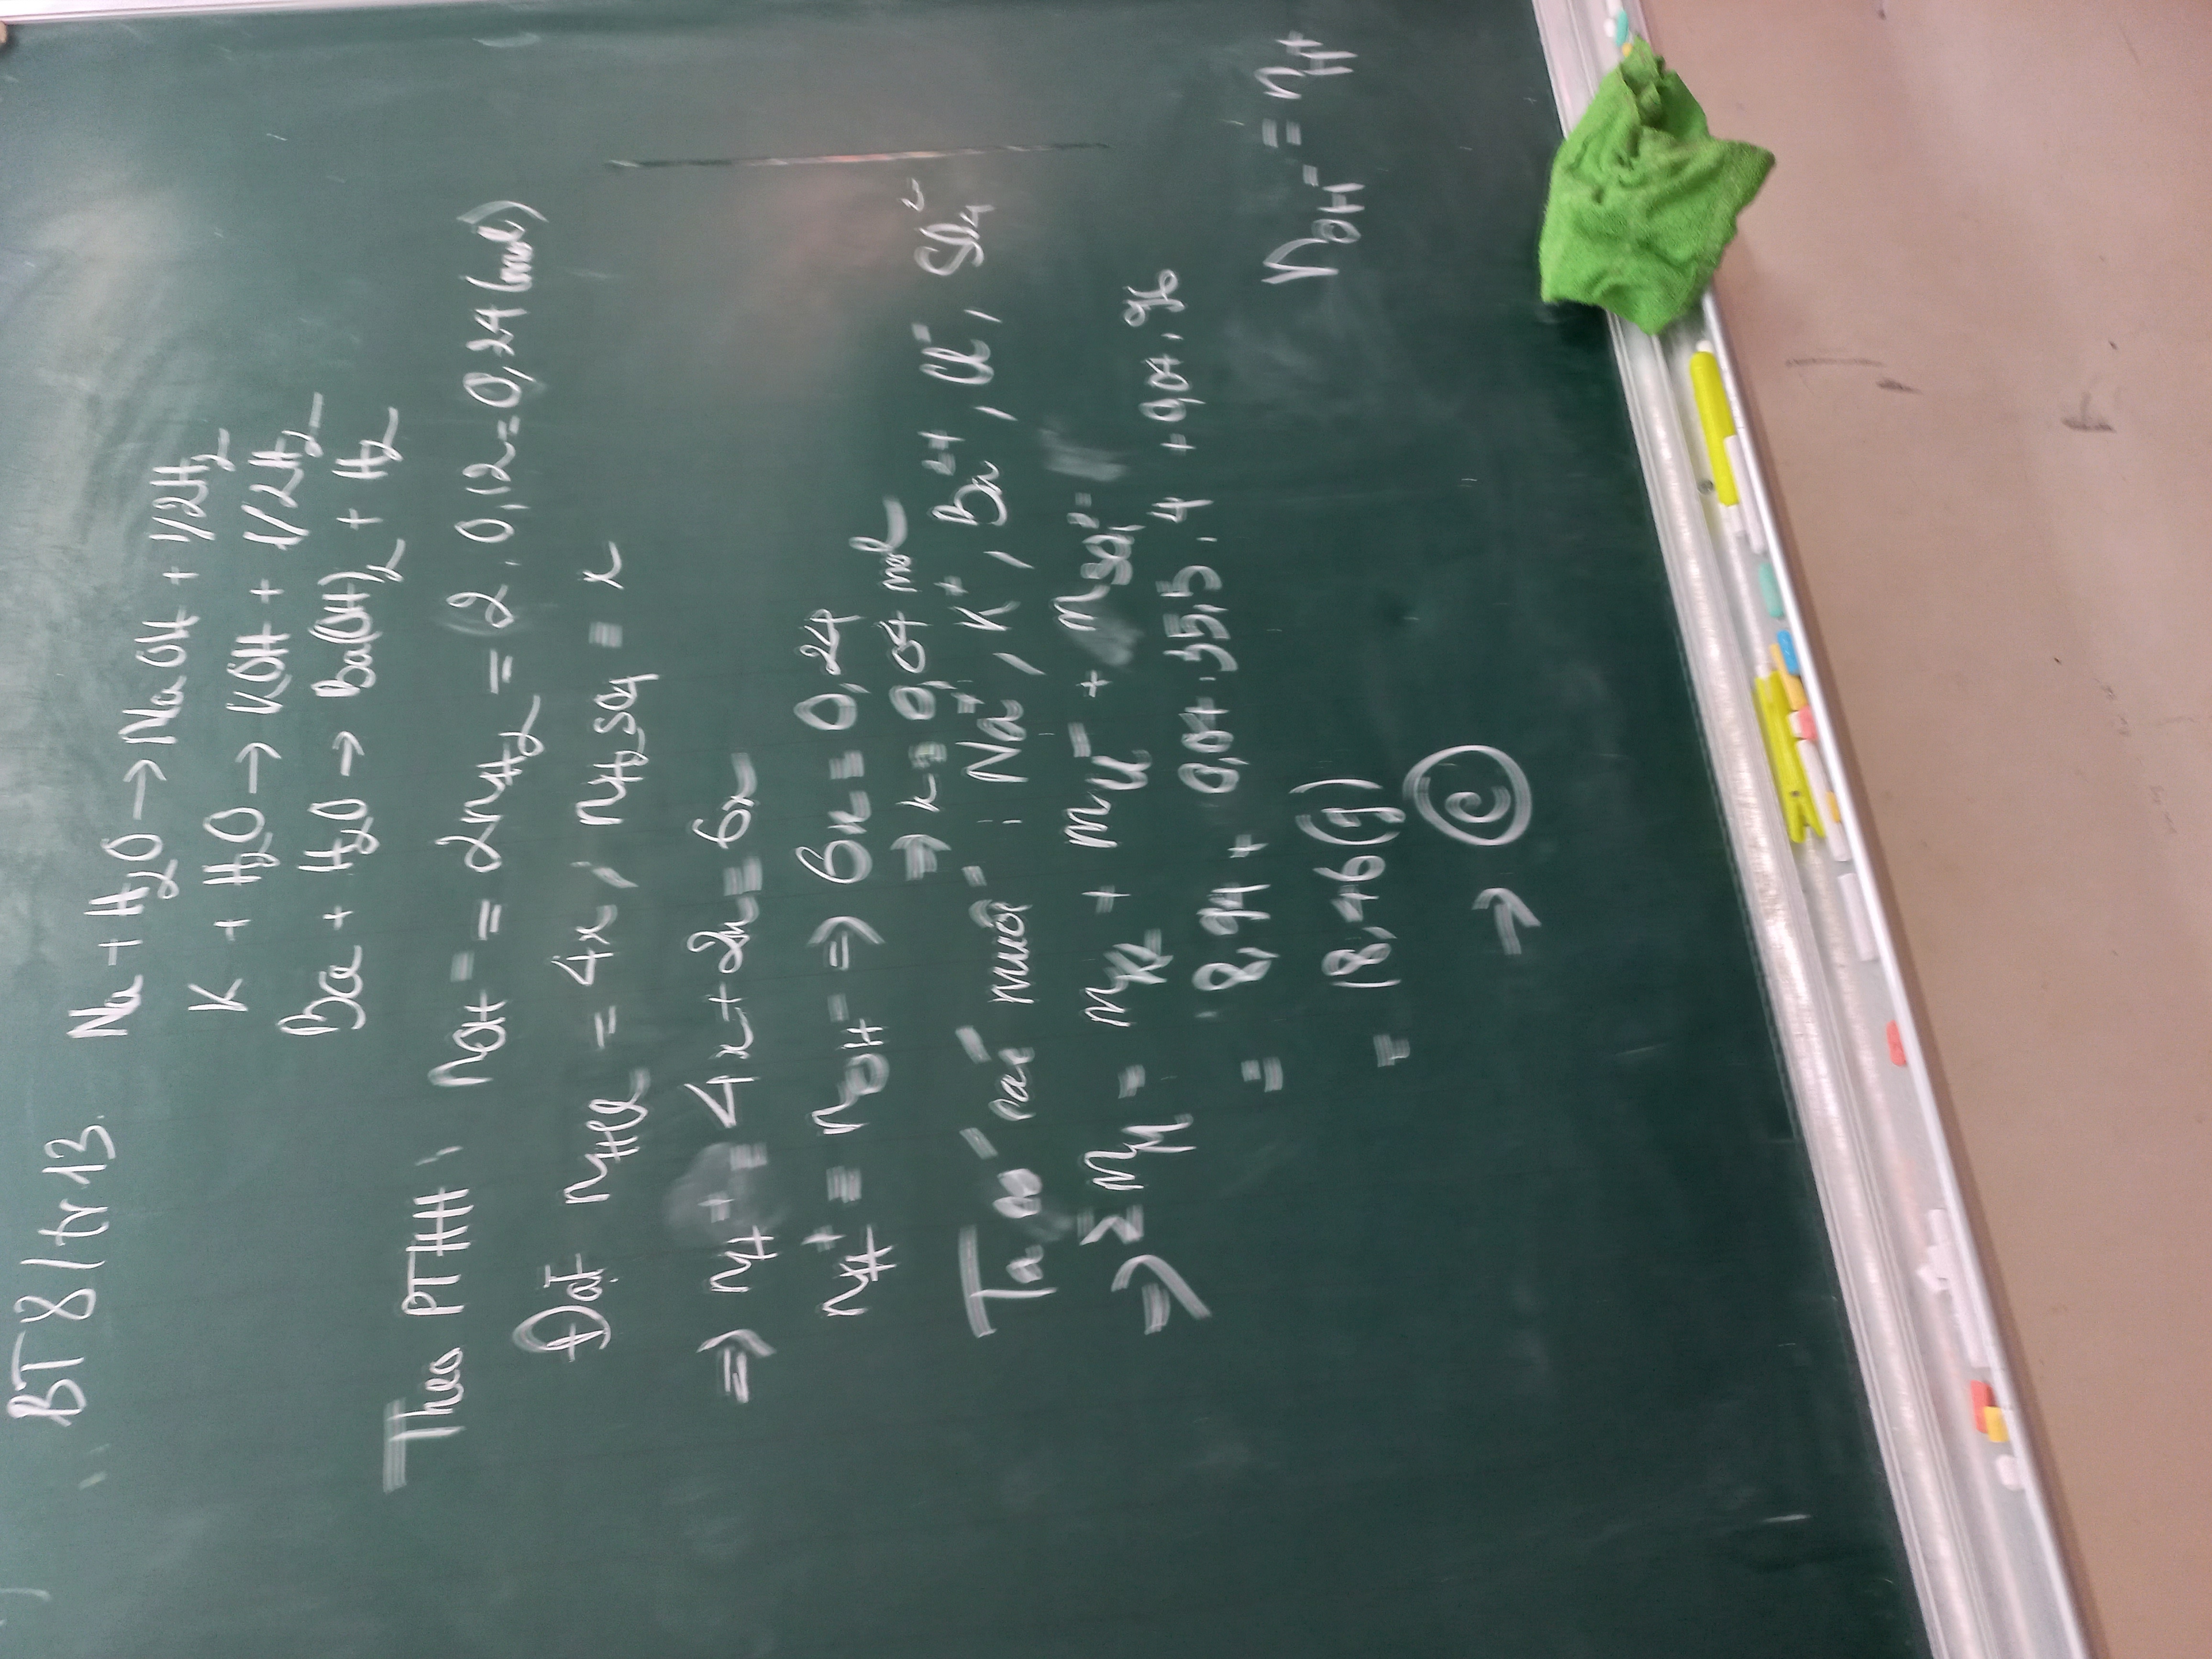 BT 8/tr 13.
Na + H₂O → NaOH + 1/2H₂
K + H₂O → KOH + 1/2H₂
Ba + H₂O → Ba(OH)₂ + H₂
Theo PTHH: nOH⁻ = 2nH₂ = 2.0,12 = 0,24 (mol)
Đặt nHCl = 4x, nH₂SO₄ = x
=> nH⁺ = 4x + 2x = 6x
nH⁺ = nOH⁻ => 6x = 0,24
=> x = 0,04 mol
Ta có các muối: Na⁺, K⁺, Ba²⁺, Cl⁻, SO₄²⁻
=> Σ mM = mKL + mCl⁻ + mSO₄²⁻
= 8,94 + 0,04.35,5.4 + 0,04.96
= 18,46 (g)
nOH⁻ = nH⁺
→ C